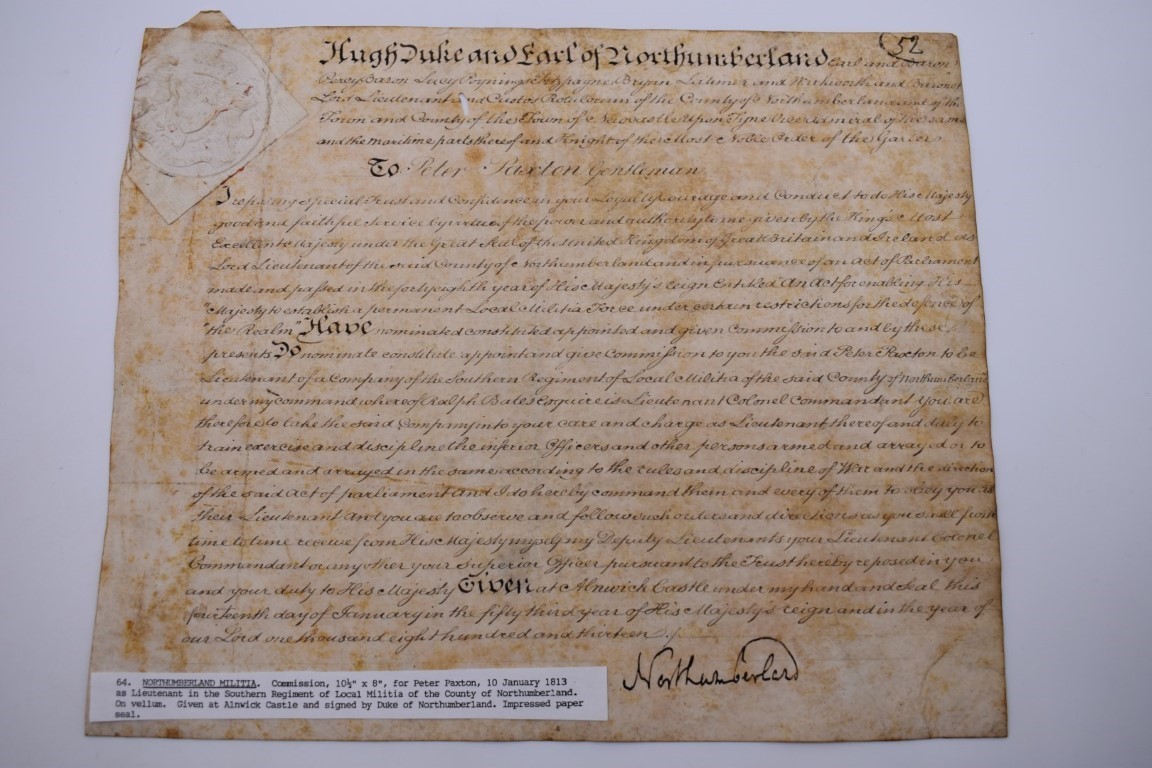 (52
Hugh Duke and Earl of Northumberland Earl and Baron
Percy Baron Lucy Poynings Fitzpayne Bryan Latimer and Warkworth and Baronet
Lord Lieutenant and Custos Rotulorum of the County of Northumberland and of the
Town and County of the Town of Newcastle upon Tyne Vice Admiral of the same
and the maritime parts thereof and Knight of the Most Noble Order of the Garter
To Peter Paxton Gentleman
I reposing especial Trust and Confidence in your Loyalty Courage and Conduct to do His Majesty
good and faithful service by virtue of the power and authority to me given by the Kings Most
Excellent Majesty under the Great Seal of the United Kingdom of Great Britain and Ireland as
Lord Lieutenant of the said County of Northumberland and in pursuance of an Act of Parliament
made and passed in the forty eighth year of His Majesty's reign Entitled "An Act for enabling His
"Majesty to establish a permanent Local Militia Force under certain restrictions for the defence of
"the Realm" Have nominated constituted appointed and given Commission to and by these
presents Do nominate constitute appoint and give Commission to you the said Peter Paxton to be
Lieutenant of a Company of the Southern Regiment of Local Militia of the said County of Northumberland
under my command whereof Ralph Bates Esquire is Lieutenant Colonel Commandant You are
therefore to take the said Company into your care and charge as Lieutenant thereof and duly to
train exercise and discipline the inferior Officers and other persons armed and arrayed or to
be armed and arrayed in the same according to the rules and discipline of War and the direction
of the said Act of parliament And I do hereby command them and every of them to obey you as
their Lieutenant And you are to observe and follow such orders and directions as you shall from
time to time receive from His Majesty myself my Deputy Lieutenants your Lieutenant Colonel
Commandant or any other your Superior Officer pursuant to the Trust hereby reposed in you
and your duty to His Majesty Given at Alnwick Castle under my hand and seal this
day of January in the fifty third year of His Majesty's reign and in the year of
our Lord one thousand eight hundred and thirteen
Northumberland
64. NORTHUMBERLAND MILITIA. Commission, 10½" x 8", for Peter Paxton, 10 January 1813
as Lieutenant in the Southern Regiment of Local Militia of the County of Northumberland.
On vellum. Given at Alnwick Castle and signed by Duke of Northumberland. Impressed paper
seal.